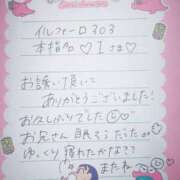 イルフィード303
本指名♡Iさま♡
お誘い頂いて
ありがとうございました!
お久しぶりでした
お兄さん眠そうだったから
ゆっくり寝れたかなぁ?
またね